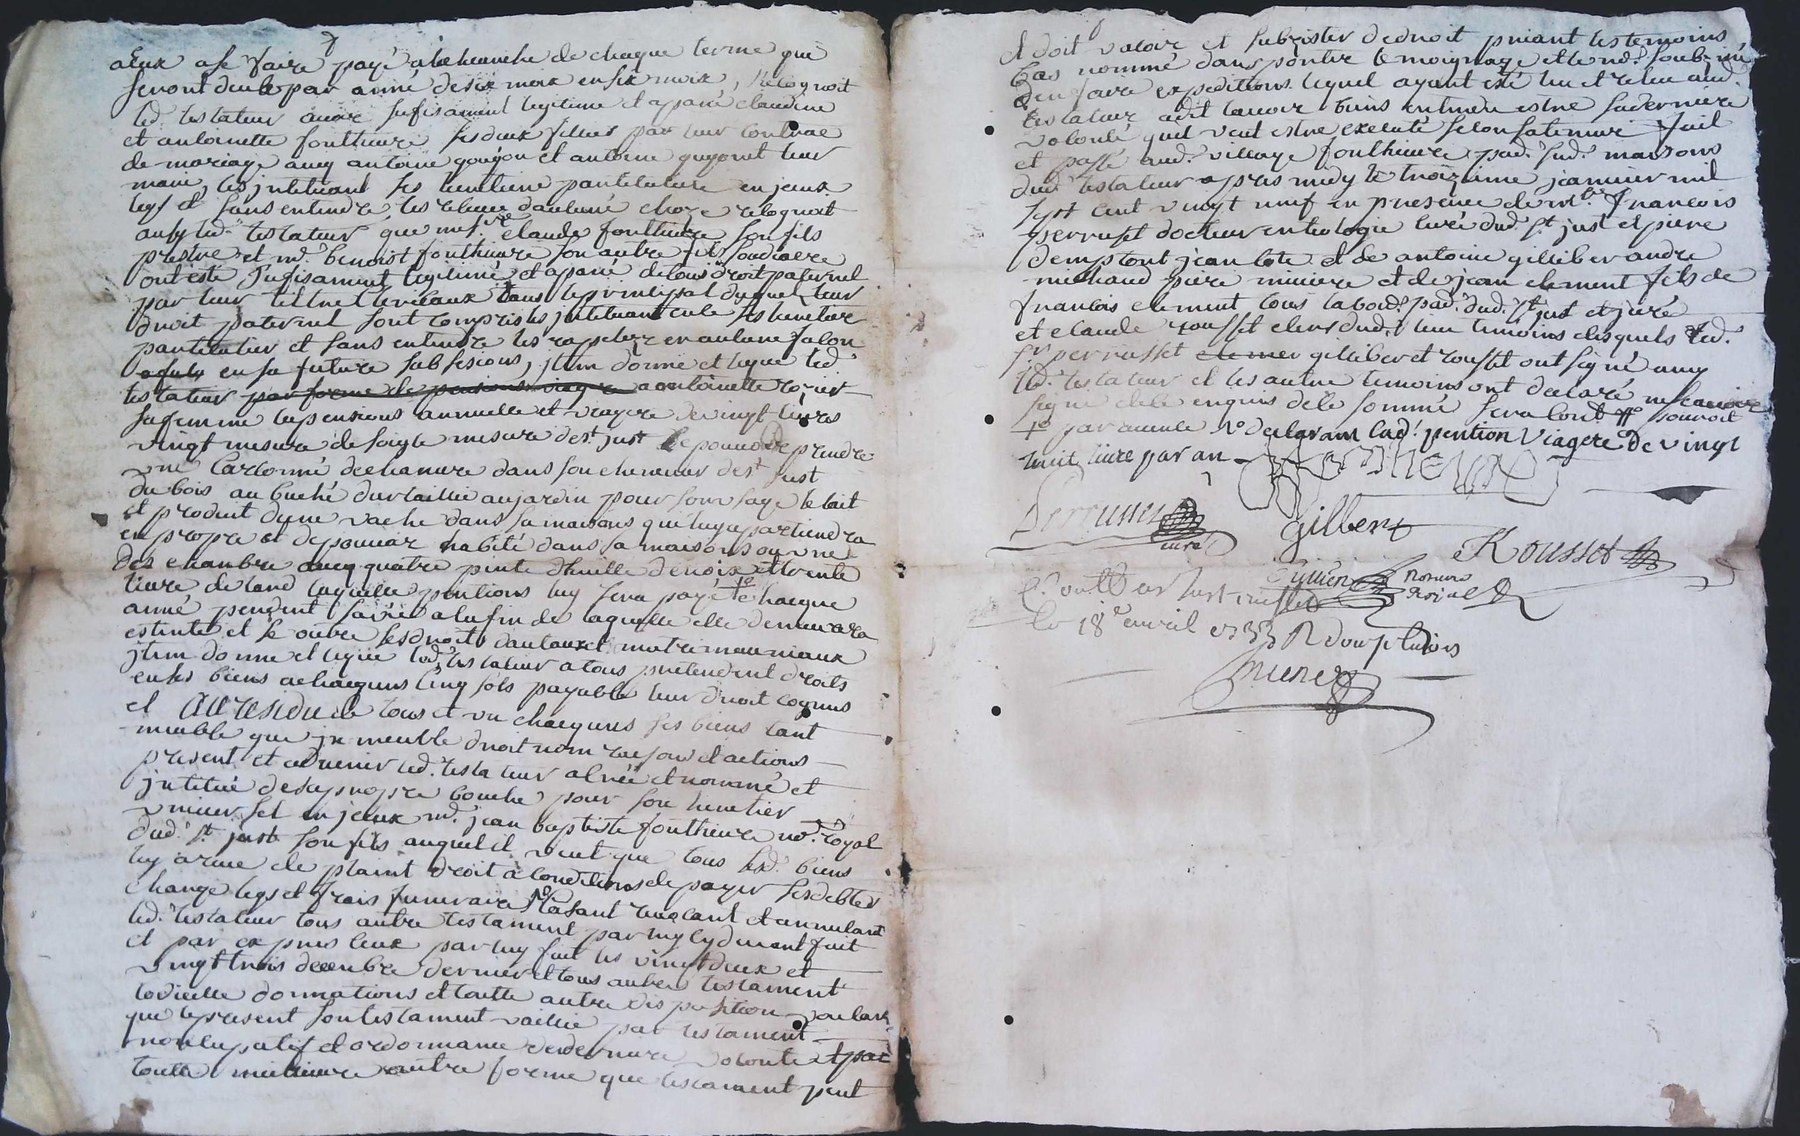 a eux a se faire payé a leheanche de chaque terme qui
seront deube par anné de six mois en six mois, recognoit
led. testateur avoir sufisament legitime et apané claudine
et antoinette fonthieure ses deux filles par leur contrac
de mariage avec antoine gougou et antoine guyonet leur
mari, les jntituant ses heritiere particuliere en jceux
legs et sans entendre les relever daulcune choze recognoit
ausy led. testateur que messire claude fonthieure son fils
prestre et md. benoist fonthieure son autre fils
ont esté sufisament legitimé et apané de tous droit paternel
par leur tiltre clericaux dans le principal duquel leur
droit paternel sont compris les jntituant en ce ses heretier
particulier et sans entendre les rapeler en aulcune fason
en sa future subsesions, jtem donne et legue led.
testateur par forme de pensions viagere a antoinette
sa femme la pensions annuelle et viagere de vingt livres
vingt mesure de soigle mesure de st. just le pouvoir prendre
une cartonné de chanvre dans son chenevier de st just
du bois au buché du taillie au jardin pour son usage le lait
et produit dune vache dans sa maisons qui luy apartiendra
en propre et de pouvoir habité dans sa maisons en une
des chambre avec quatre pinte dhuille de noix et trente
livre de lard laquelle pentions luy sera payé chacque
anné pendent sa vie a la fin de laquelle elle demeurera
estinte et se outre ses droits dautaux et matrimauniaux
jtem donne et legue led. testateur a tous pretendent droits
en ses biens a chacquns cinq sols payable leur droit cognus
et Au residu de tous et un chacquns ses biens tant
meuble que jmmeuble droit nom raison et actions
present et advenir led. testateur a crée et nommé et
jntitué de sa propre bouche pour son heretier
universel en jceux md. jean baptiste fonthieure nore. royal
dud. st. just son fils auquel il veut que tous sesd. biens
luy arive de plaint droit a conditions de payer ses debtes
charge legs et frais funeraire cassant revocant et annulant
led. testateur tous autre testament par luy cy devant fait
et par expres ceux par luy fait les vingt deux et
vingt trois decembre dernier et tous autres testament
codicille donnations et toutte autre disposition voulant
que le present son testament vaille par testament
noncupatif et ordonnance de derniere volonté et par
toutte meilleure autre forme que testament peut
et doit valoir et subsister de droit priant les temoins
bas nommé dans porter temoignage et le nore. soubsiné
den faire expeditions lequel ayant esté lu et relu aud.
testateur a dit lavoir bien entendu estre sa derniere
volonté quil veut estre executé selon sa teneur Fait
et passé aud. village fonthieure parr. sud. maisons
dud. testateur apres midy le troizieme janvier mil
sept cent vingt neuf en presence de mre. Francois
perrusset docteur en teologie curé dud. st just et pierre
demptout jean cote et de antoine gilliber andre
michaud piere miniere et de jean clement fils de
francois clement tous labords. parr. dud. st just et juré
et claude rousset clerc dud. lieu temoins desquels led.
sr. perrusset gilliber et rousset ont signé avec
led. testateur et les autre temoins ont declaré ne scavoir
signe de ce enquis de ce sommé
pention viagere de vingt
huit livre par an
fontthieure
Perrusset
curé
Gilbert
Rousset
notaire
Roial
le 18e avril 1733 R douze livres